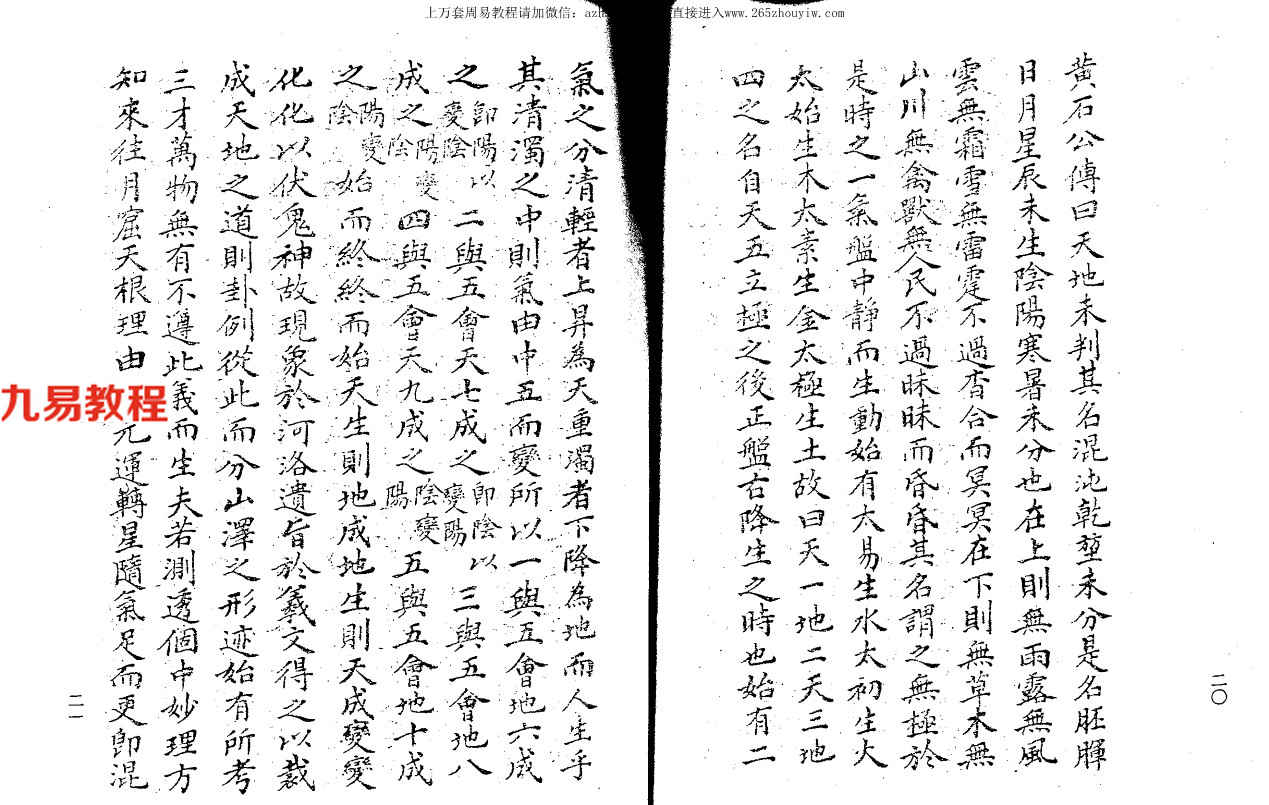 上万套周易教程请加微信：azh 直接进入www.265zhouyiw.com
黃石公傳曰天地未判其名混沌乾堃未分是名胚腪
日月星辰未生陰陽寒暑未分也在上則無雨露無風
雲無霜雪無雷霆不過杳合而冥冥在下則無草木無
山川無禽獸無人民不過昧昧而昏昏其名謂之無極於
是時之一氣盤中靜而生動始有太易生水太初生火
太始生木太素生金太極生土故曰天一地二天三地
四之名自天五立極之後正盤古降生之時也始有二
二〇
氣之分清輕者上昇為天重濁者下降為地而人生乎
其清濁之中則氣由中五而變所以一與五會地六成
之即陽以變陰二與五會天七成之即陰以變陽三與五會地八
成之陽變陰四與五會天九成之陰變陽五與五會地十成
之陽變陰始而終終而始天生則地成地生則天成變變
化化以伏鬼神故現象於河洛遺旨於羲文得之以裁
成天地之道則卦例從此而分山澤之形迹始有所考
三才萬物無有不遵此義而生夫若測透個中妙理方
知來往月窟天根理由元運轉星隨氣足而更即混
二一
九易教程